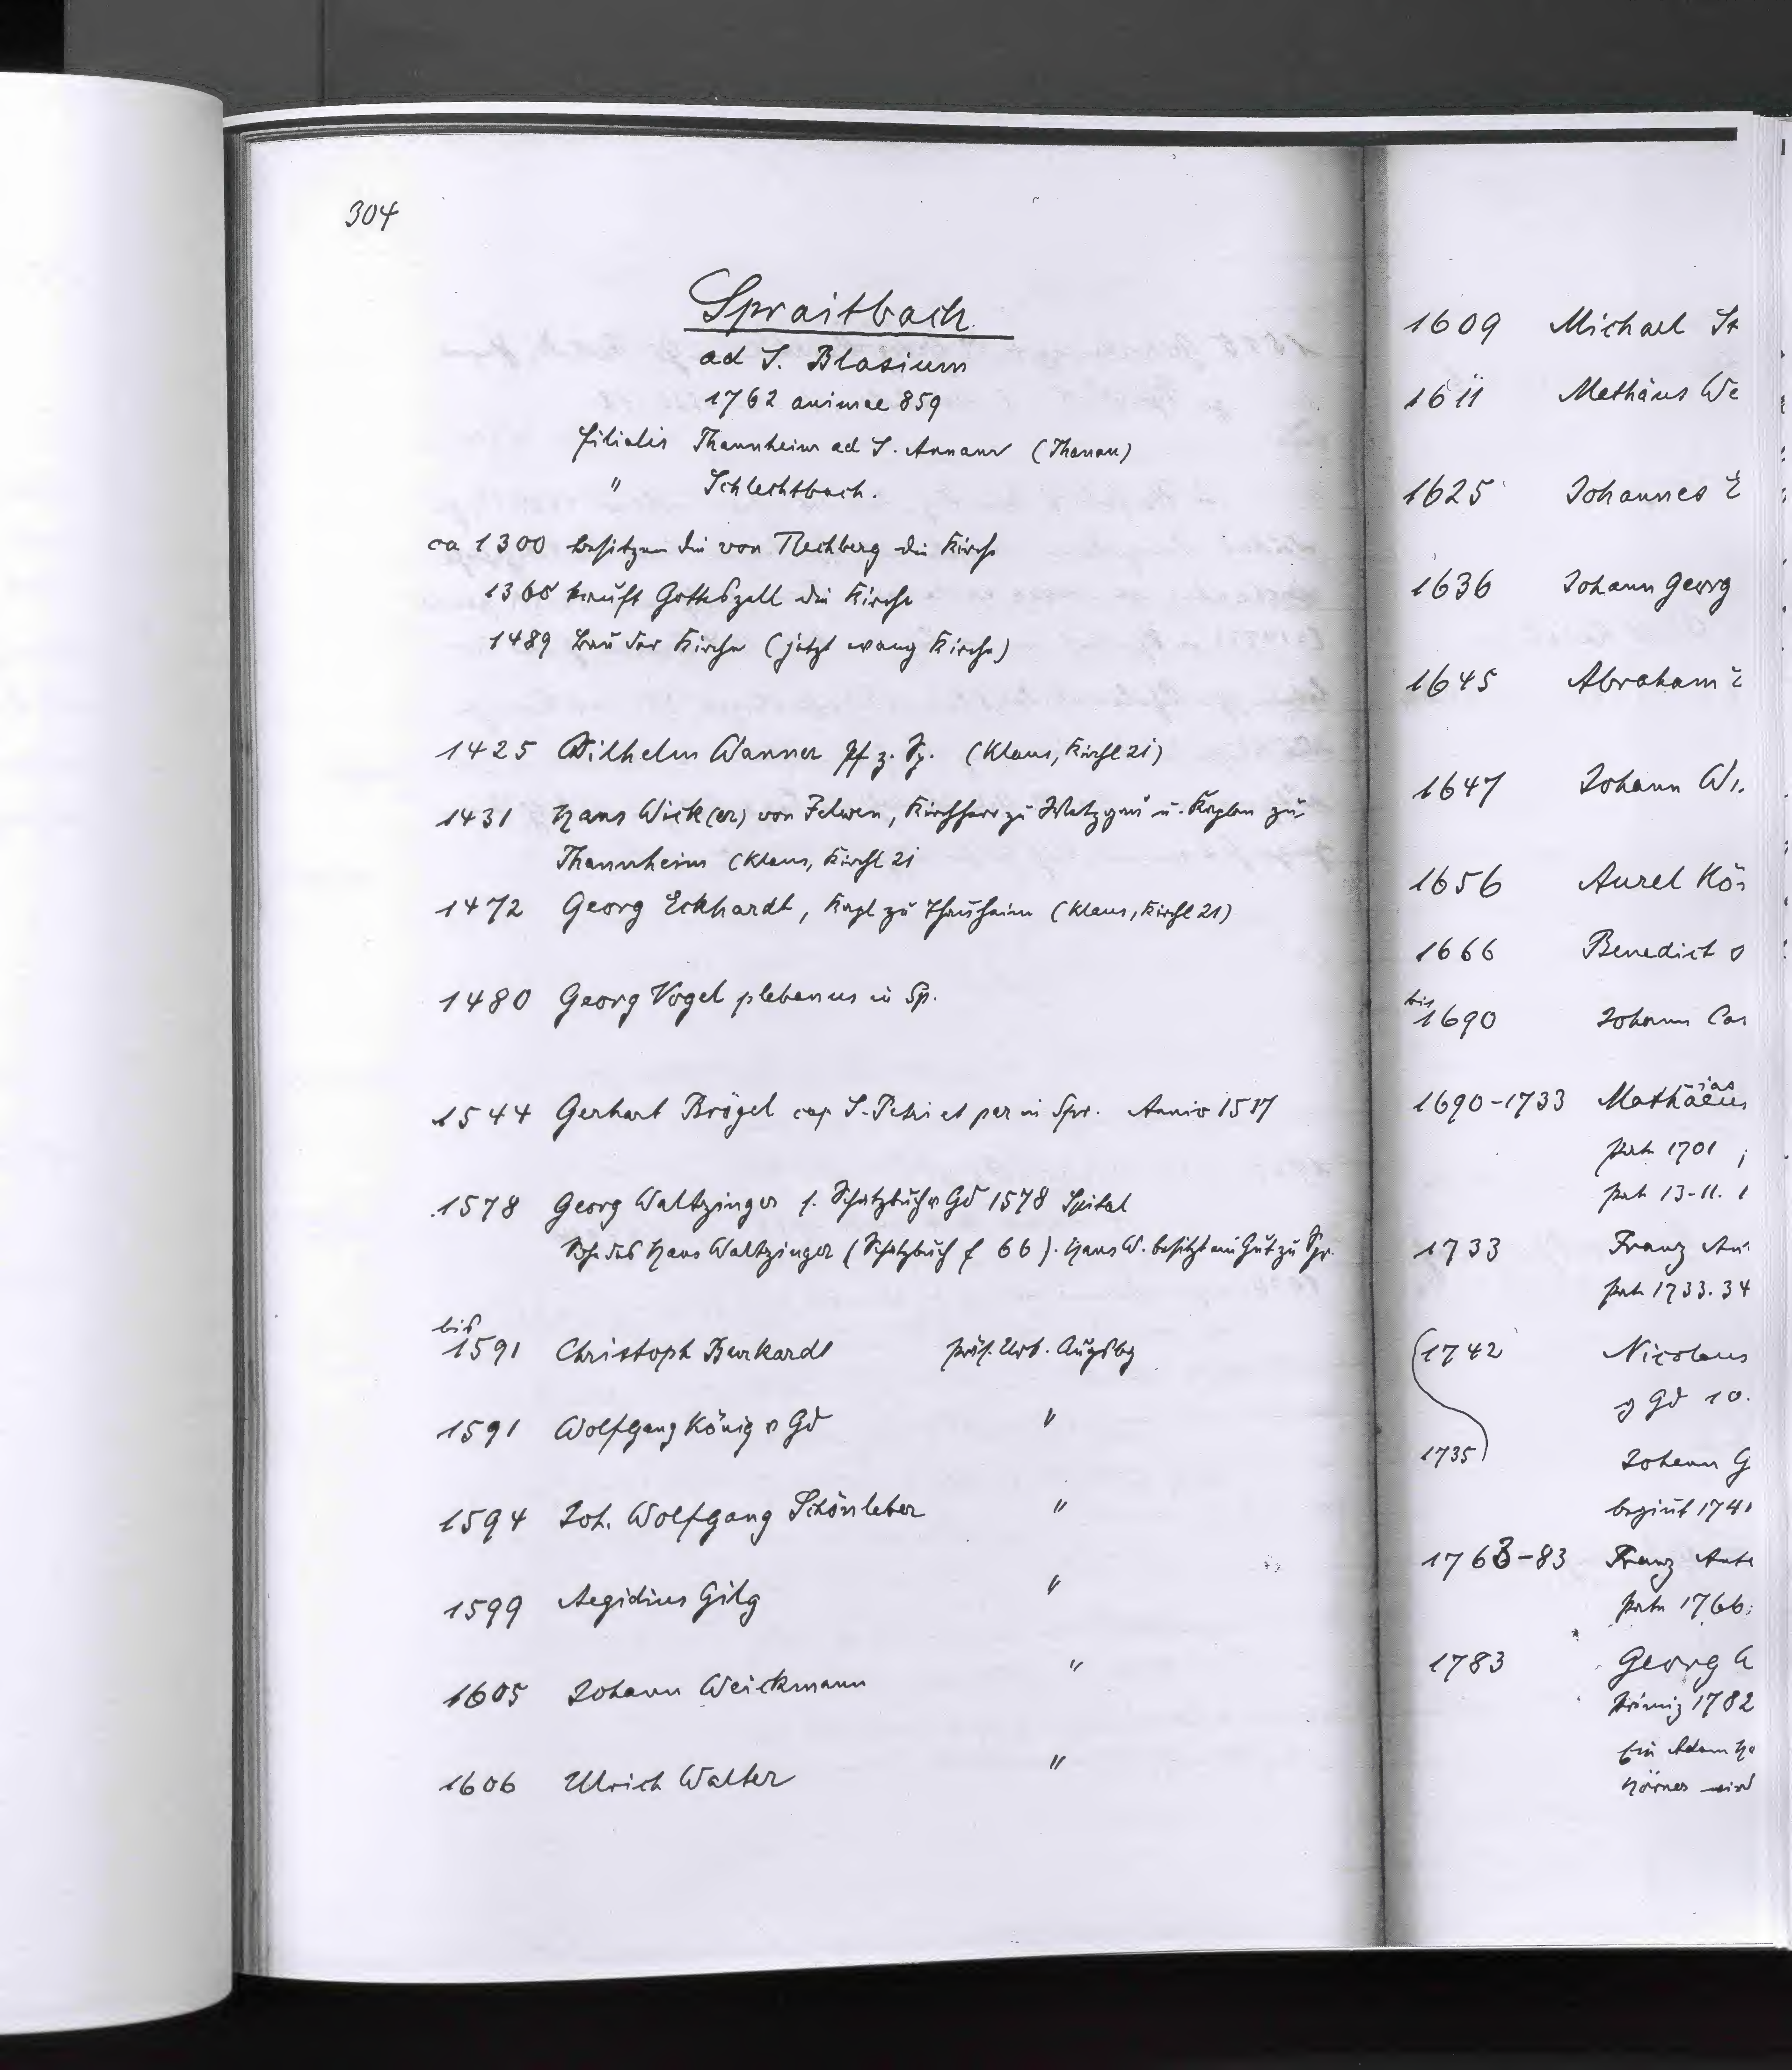 304
Spraitbach
ad S. Blasium
1762 animae 859
filialis Thannheim ad S. Annam (Thanau)
" Schlechtbach.
ca 1300 besitzen die von Rechberg die Kirche
1365 kauft Gotteszell die Kirche
1489 Bau der Kirche (jetzt evang Kirche)
1425 Wilhelm Wanner Pf z. Sp. (Klaus, Kirchl 21)
1431 Hans Wick(er) von , Kirchherr zu u. Kaplan zu
Thannheim (Klaus, Kirchl 21
1472 Georg Eckhardt, Kapl zu Thanheim (Klaus, Kirchl 21)
1480 Georg Vogel plebanus in Sp.
1544 Gerhart Brögel cap S. Petri et par in Spr. Anniv 1517
1578 Georg Waltzinger f. Schatzbuch v Gd 1578 Spital
Sohn des Hans Waltzinger (Schatzbuch f 66). Hans W. besitzt ein Gut zu Spr.
bis
1591 Christoph Burkardt präs. Urk. Augsbg
1591 Wolfgang König v Gd "
1594 Joh. Wolfgang Schönleber "
1599 Aegidius Gilg "
1605 Johann Weickmann "
1606 Ulrich Walter "
1609 Michael St
1611 Mathäus We
1625 Johannes
1636 Johann Georg
1645 Abraham
1647 Johann Wi
1656 Aurel Kö
1666 Benedict
bis
1690 Johann Cas
1690-1733 Mathäus
ias
Pate 1701 ;
Pate 13-11.
1733 Franz An
Pate 1733. 34
1742 Nicolaus
Gd 10.
1735 Johann G
beginnt 1741
1763-83 Franz Anto
Pate 1766
1783 Georg
Primiz 1782
Ein Adam
Hörner wird